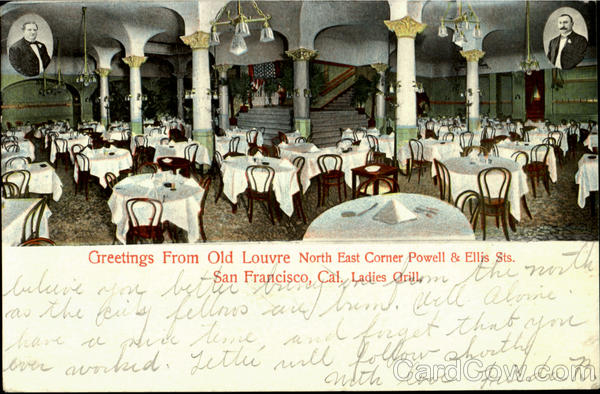 Greetings From Old Louvre North East Corner Powell & Ellis Sts.
San Francisco, Cal. Ladies Grill.
believe you better bring one from the north
as the city fellows are bum. Well Alonie
have a nice time and forget that you
ever worked. Letter will follow shortly
With
CardCow.com